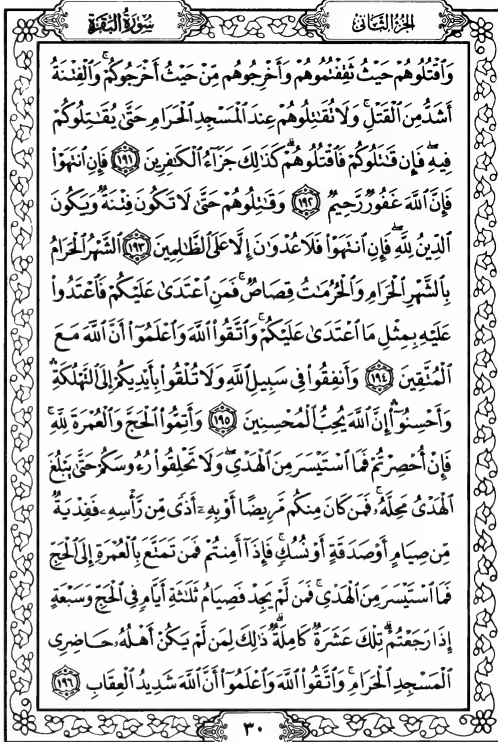 سُورَةُ البَقَرَةِ
الجُزْءُ الثَّانِي
وَاقْتُلُوهُمْ حَيْثُ ثَقِفْتُمُوهُمْ وَأَخْرِجُوهُم مِّنْ حَيْثُ أَخْرَجُوكُمْ ۚ وَالْفِتْنَةُ
أَشَدُّ مِنَ الْقَتْلِ ۚ وَلَا تُقَاتِلُوهُمْ عِندَ الْمَسْجِدِ الْحَرَامِ حَتَّىٰ يُقَاتِلُوكُمْ
فِيهِ ۖ فَإِن قَاتَلُوكُمْ فَاقْتُلُوهُمْ ۗ كَذَٰلِكَ جَزَاءُ الْكَافِرِينَ ١٩١ فَإِنِ انتَهَوْا
فَإِنَّ اللَّهَ غَفُورٌ رَّحِيمٌ ١٩٢ وَقَاتِلُوهُمْ حَتَّىٰ لَا تَكُونَ فِتْنَةٌ وَيَكُونَ
الدِّينُ لِلَّهِ ۖ فَإِنِ انتَهَوْا فَلَا عُدْوَانَ إِلَّا عَلَى الظَّالِمِينَ ١٩٣ الشَّهْرُ الْحَرَامُ
بِالشَّهْرِ الْحَرَامِ وَالْحُرُمَاتُ قِصَاصٌ ۚ فَمَنِ اعْتَدَىٰ عَلَيْكُمْ فَاعْتَدُوا
عَلَيْهِ بِمِثْلِ مَا اعْتَدَىٰ عَلَيْكُمْ ۚ وَاتَّقُوا اللَّهَ وَاعْلَمُوا أَنَّ اللَّهَ مَعَ
الْمُتَّقِينَ ١٩٤ وَأَنفِقُوا فِي سَبِيلِ اللَّهِ وَلَا تُلْقُوا بِأَيْدِيكُمْ إِلَى التَّهْلُكَةِ ۛ
وَأَحْسِنُوا ۛ إِنَّ اللَّهَ يُحِبُّ الْمُحْسِنِينَ ١٩٥ وَأَتِمُّوا الْحَجَّ وَالْعُمْرَةَ لِلَّهِ ۚ
فَإِنْ أُحْصِرْتُمْ فَمَا اسْتَيْسَرَ مِنَ الْهَدْيِ ۖ وَلَا تَحْلِقُوا رُءُوسَكُمْ حَتَّىٰ يَبْلُغَ
الْهَدْيُ مَحِلَّهُ ۚ فَمَن كَانَ مِنكُم مَّرِيضًا أَوْ بِهِ أَذًى مِّن رَّأْسِهِ فَفِدْيَةٌ
مِّن صِيَامٍ أَوْ صَدَقَةٍ أَوْ نُسُكٍ ۚ فَإِذَا أَمِنتُمْ فَمَن تَمَتَّعَ بِالْعُمْرَةِ إِلَى الْحَجِّ
فَمَا اسْتَيْسَرَ مِنَ الْهَدْيِ ۚ فَمَن لَّمْ يَجِدْ فَصِيَامُ ثَلَاثَةِ أَيَّامٍ فِي الْحَجِّ وَسَبْعَةٍ
إِذَا رَجَعْتُمْ ۗ تِلْكَ عَشَرَةٌ كَامِلَةٌ ۗ ذَٰلِكَ لِمَن لَّمْ يَكُنْ أَهْلُهُ حَاضِرِي
الْمَسْجِدِ الْحَرَامِ ۚ وَاتَّقُوا اللَّهَ وَاعْلَمُوا أَنَّ اللَّهَ شَدِيدُ الْعِقَابِ ١٩٦
٣٠